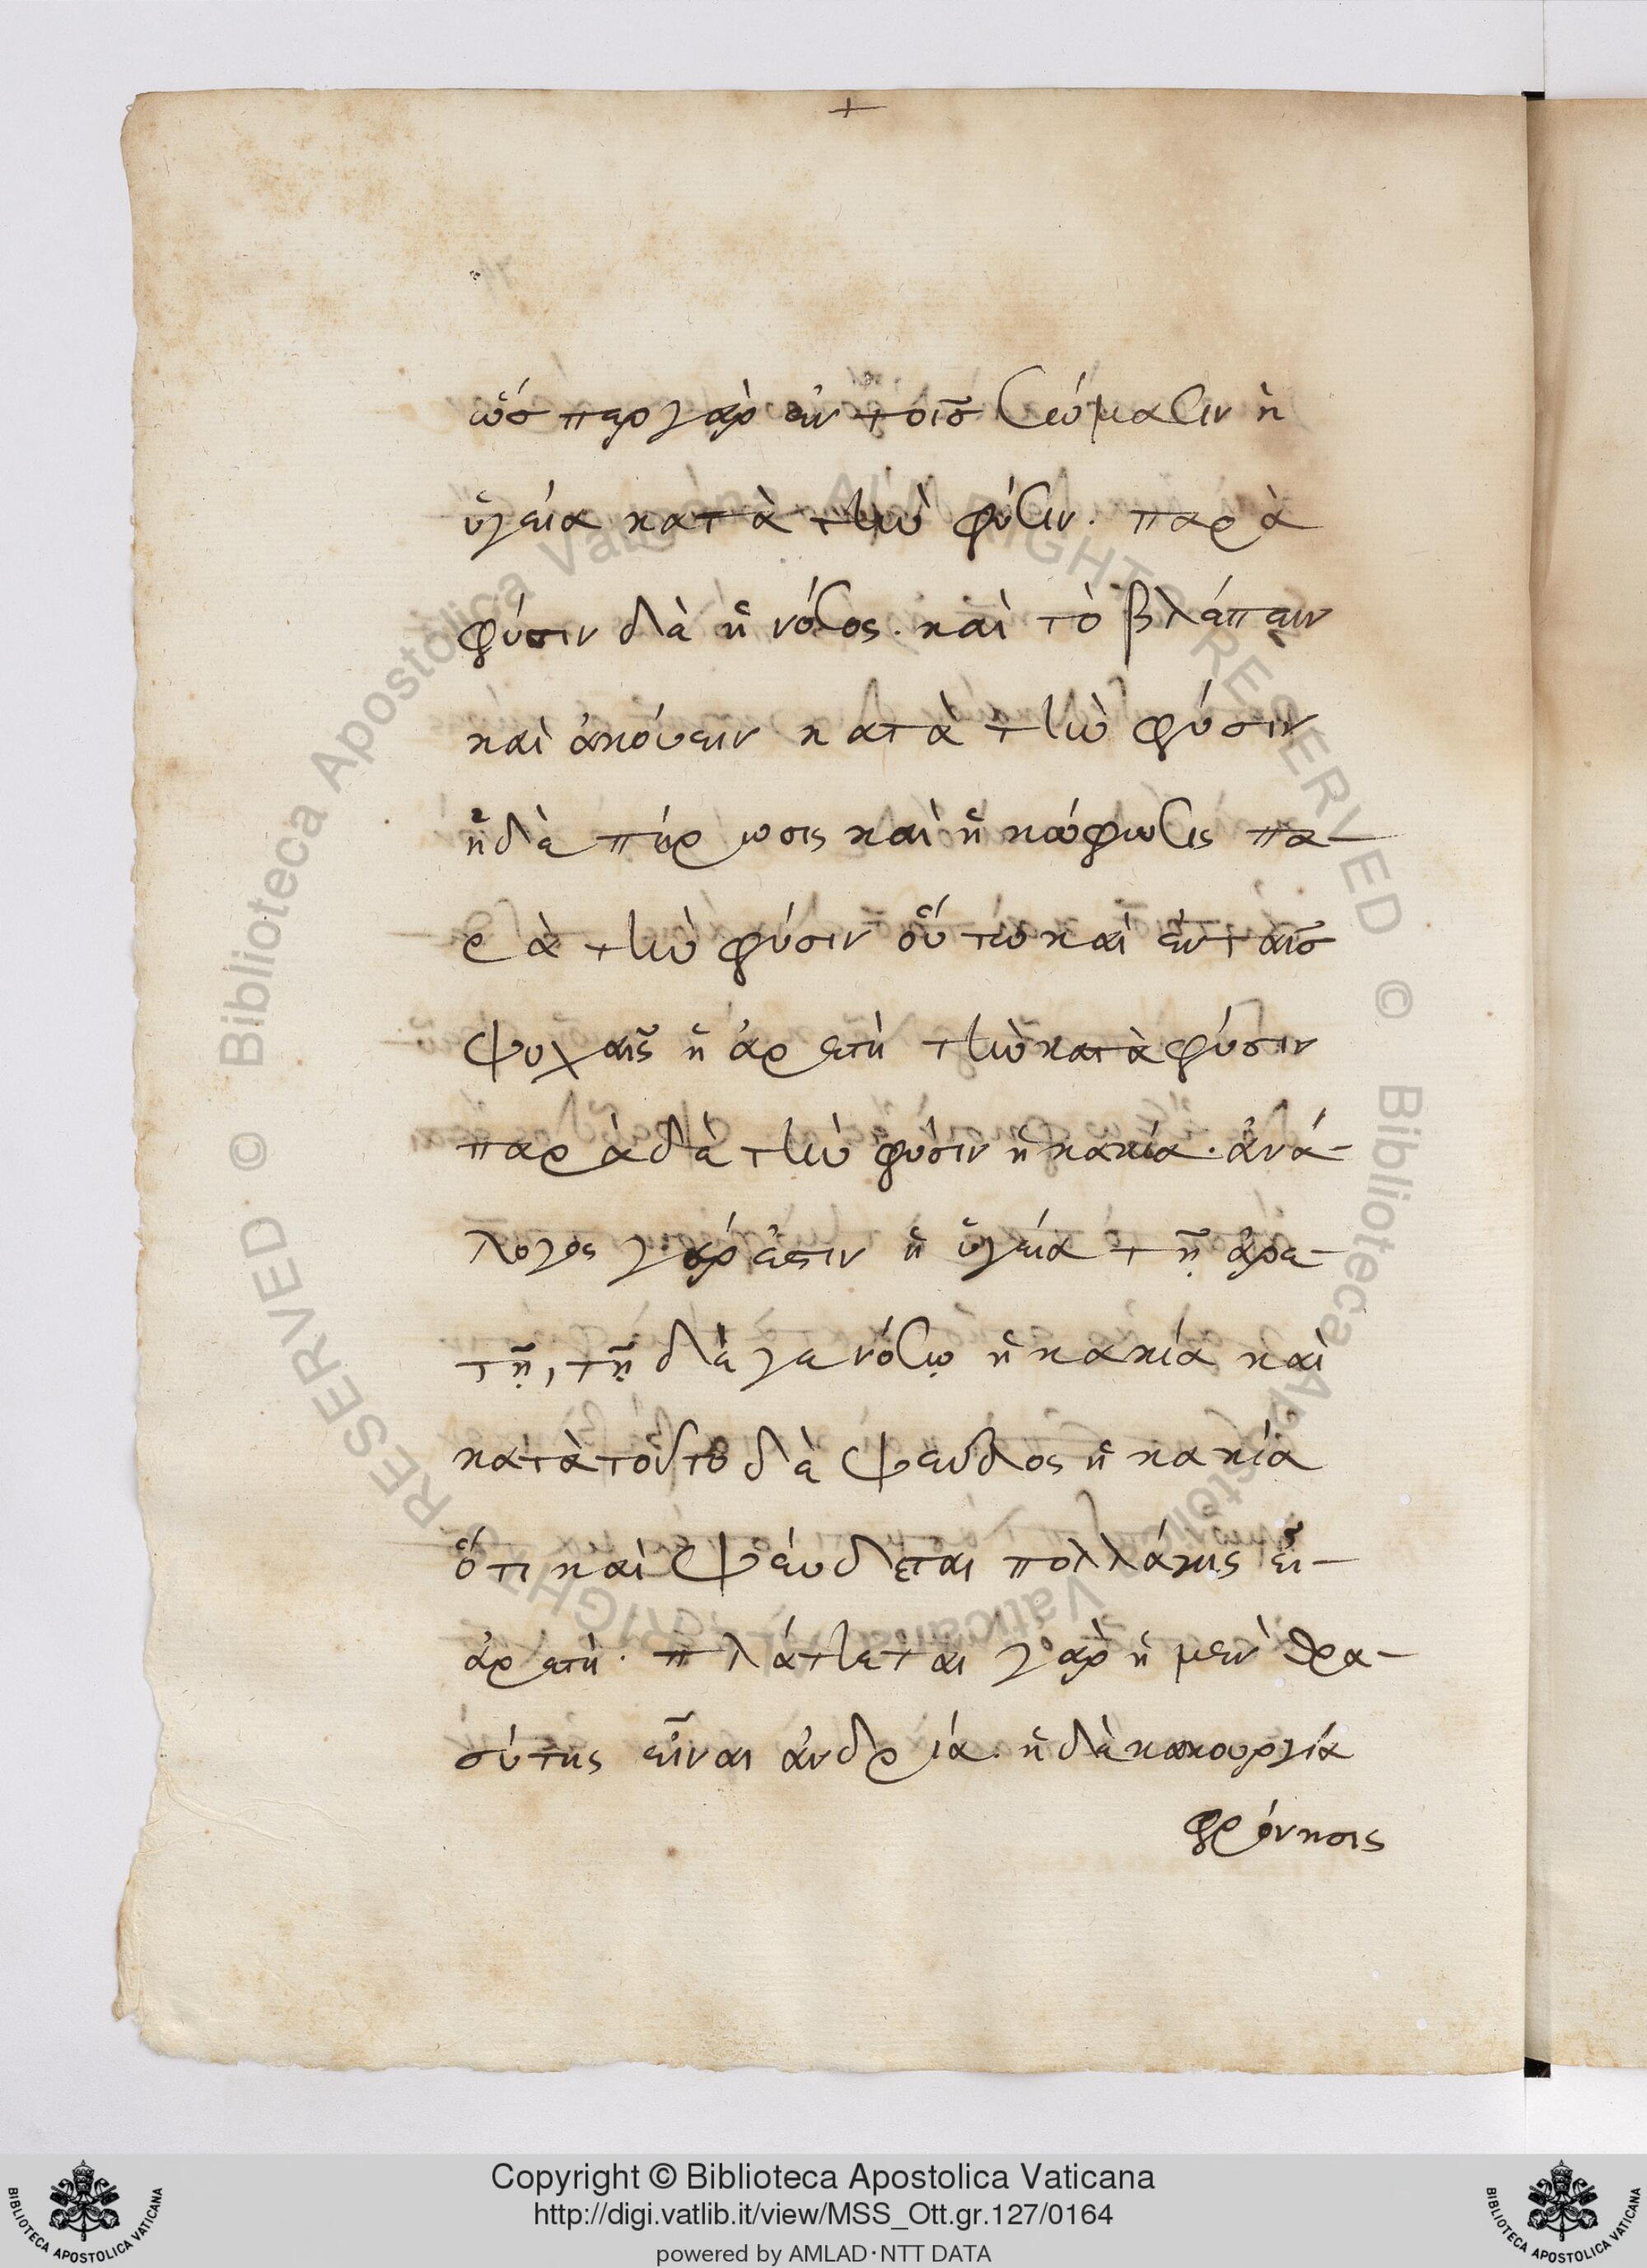 +
ὥσπερ γὰρ ἐν τοῖσ σώμασιν ἡ
ὑγεία κατὰ τὴν φύσιν. παρὰ
φύσιν δὲ ἡ νόσος. καὶ τὸ βλέπειν
καὶ ἀκούειν κατὰ τὴν φύσιν
ἡ δὲ πήρωσις καὶ ἡ κώφωσις πα-
ρὰ τὴν φύσιν οὕτω καὶ ἐν ταῖσ
ψυχαῖς ἡ ἀρετὴ τὴν κατὰ φύσιν
παρὰ δὲ τὴν φύσιν ἡ κακία. ἀνά-
λογος γάρ ἐστιν ἡ ὑγεία τῇ ἀρε-
τῇ, τῇ δέ γε νόσῳ ἡ κακία καὶ
κατὰ τοῦτο δὲ ψεῦδος ἡ κακία
ὅτι καὶ ψεύδεται πολλάκις εἶ-
ἀρετὴ. πλάττεται γὰρ ἡ μεν θρα-
σύτης εἶναι ἀνδρία. ἡ δὲ κακουργία
φρόνησις
© Biblioteca Apostolica Vaticana ALL RIGHTS RESERVED © Biblioteca Apostolica Vaticana ALL RIGHTS RESERVED
Copyright © Biblioteca Apostolica Vaticana
http://digi.vatlib.it/view/MSS_Ott.gr.127/0164
powered by AMLAD·NTT DATA
BIBLIOTECA APOSTOLICA VATICANA
BIBLIOTECA APOSTOLICA VATICANA